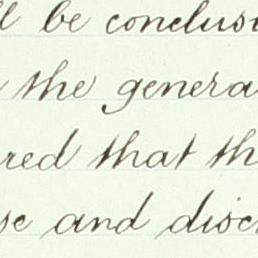 ll be conclus
the genera
red that th
se and disc